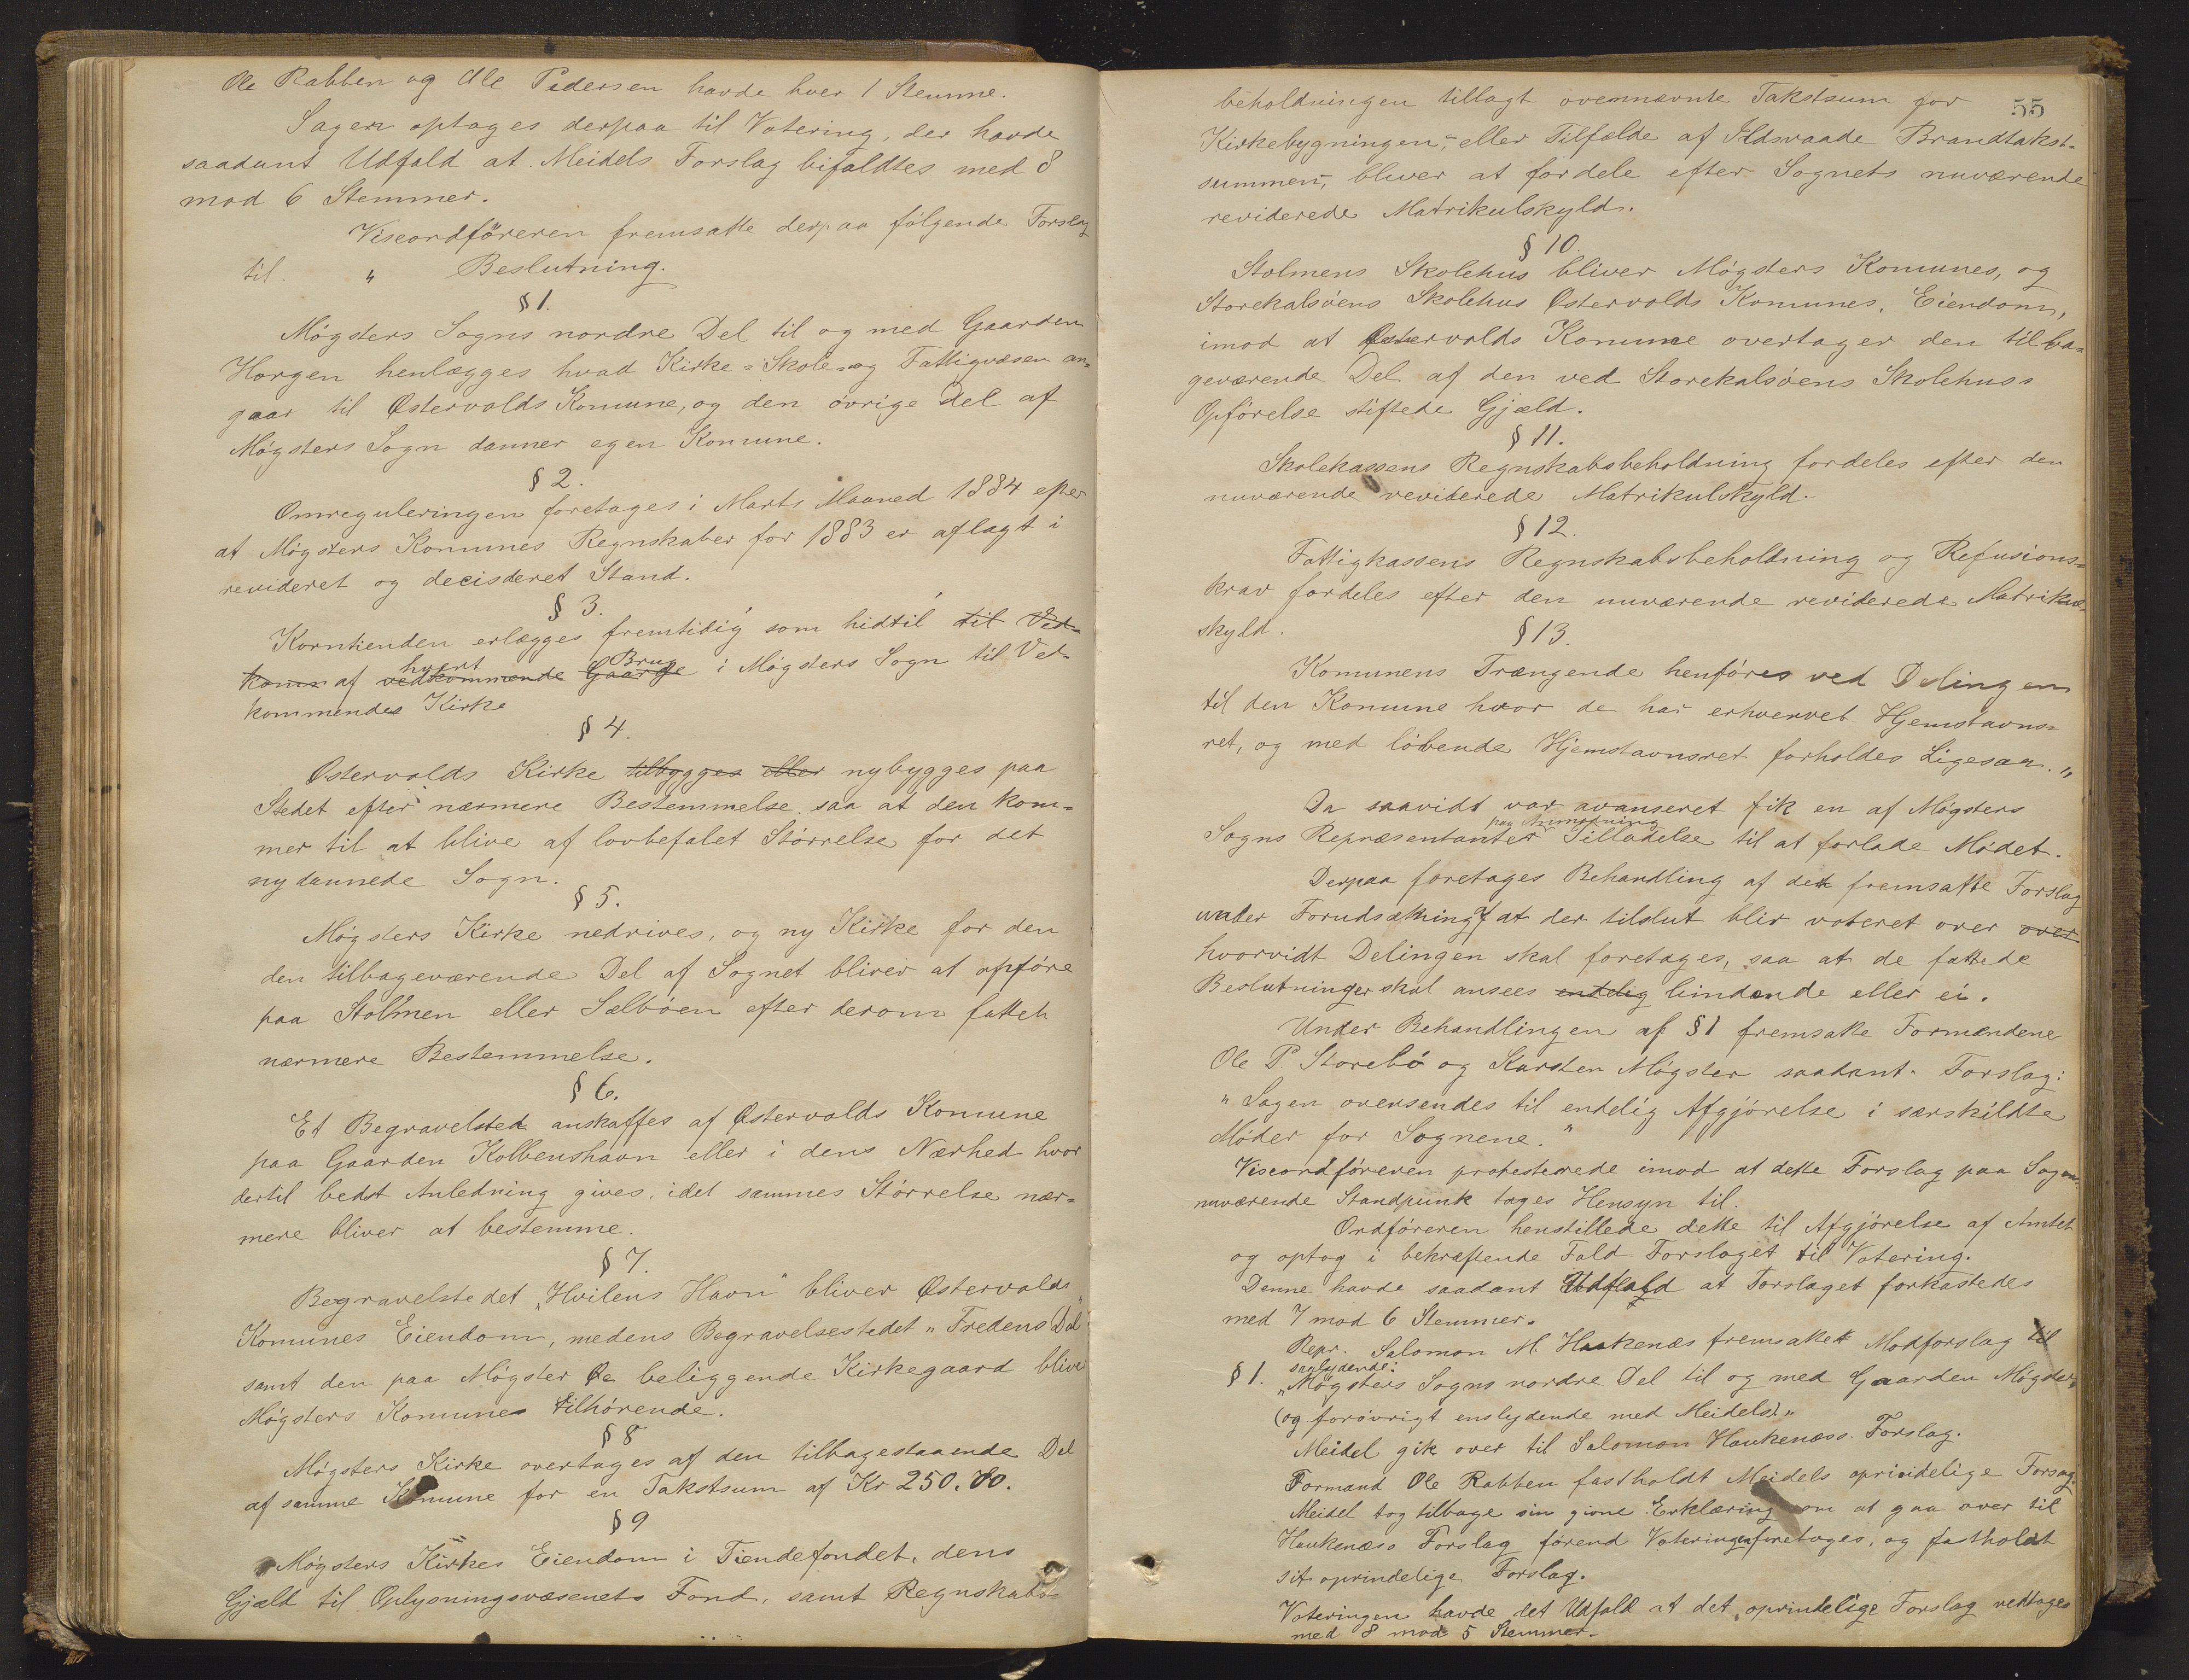 Ole Rabben og Ole Pedersen havde hver 1 Stemme.
Sagen optages derpaa til Votering, der havde
saadant Udfald at Meidels Forslag bifaldtes med 8
mod 6 Stemmer.
Viseordföreren fremsatte derpaa fölgende Forslag
til " Beslutning.
§ 1.
Møgsters Sogns nordre Del til og med Gaarden
Horgen henlægges hvad Kirke- Skole- og Fattigvæsen an-
gaar til Østervolds Komune, og den övrige Del af
Møgsters Sogn danner egen Komune.
§ 2.
Omreguleringen foretages i Marts Maaned 1884 efter
at Møgsters Komunes Regnskaber for 1883 er aflagt i
revideret og decideret Stand.
§ 3.
Korntienden erlægges fremtidig som hidtil til Ved-
kom af vedkommende hvert Gaarde Brug i Møgsters Sogn til Ved-
kommendes Kirke
§ 4.
Østervolds Kirke tilbygges eller nybygges paa
Stedet efter nærmere Bestemmelse saa at den kom-
mer til at blive af lovbefalet Störrelse for det
nydannede Sogn.
§ 5.
Møgsters Kirke nedrives, og ny Kirke for den
den tilbageværende Del af Sognet bliver at opföre
paa Stolmen eller Sælböen efter derom fattet
nærmere Bestemmelse.
§ 6.
Et Begravelsted anskaffes af Østervolds Komune
paa Gaarden Kolbenshavn eller i dens Nærhed hvor
dertil bedst Anledning gives, idet sammes Störrelse nær-
mere bliver at bestemme.
§ 7.
Begravelstedet "Hvilens Havn" bliver Østervolds
Komunes Eiendom, medens Begravelsestedet "Fredens Dal"
samt den paa Møgster Øe beliggende Kirkegaard bliver
Møgsters Komunes tilhörende.
§ 8
Møgsters Kirke overtages af den tilbagestaaende Del
af samme Komune for en Takstsum af Kr 250.00.
§ 9
Møgsters Kirkes Eiendom i Tiendefondet, dens
Gjæld til Oplysningsvæsenets Fond, samt Regnskabs-
55
beholdningen tillagt ovennævnte Takstsum for
Kirkebygningen,- eller Tilfælde af Ildsvaade Brandtakst-
summen,- bliver at fordele efter Sognets nuværende
reviderede Matrikulskyld.
§ 10.
Stolmens Skolehus bliver Møgsters Komunes, og
Storekalsöens Skolehus Østervolds Komunes, Eiendom,
imod at Østervolds Komune overtager den tilba-
geværende Del af den ved Storekalsöens Skolehuss
Opförelse stiftede Gjæld.
§ 11.
Skolekassens Regnskabsbeholdning fordeles efter den
nuværende reviderede Matrikulskyld.
§ 12.
Fattigkassens Regnskabsbeholdning og Refusions-
krav fordeles efter den nuværende reviderede Matrikul-
skyld.
§ 13.
Komunens Trængende henföres ved Delingen
til den Komune hvor de har erhvervet Hjemstavns-
ret, og med löbende Hjemstavnsret forholdes Ligesaa."
Da saavidt var avanseret fik en af Møgsters
Sogns Repræsentanter paa Anmodning Tilladelse til at forlade Mödet.
Derpaa foretages Behandling af det fremsatte Forslag
under Forudsætning af at der tilslut blir voteret over over
hvorvidt Delingen skal foretages, saa at de fattede
Beslutninger skal ansees endelig bindende eller ei.
Under Behandlingen af § 1 fremsatte Formændene
Ole P. Storebö og Karsten Møgster saadant Forslag:
"Sagen oversendes til endelig Afgjörelse i særskildte
Möder for Sognene."
Viseordföreren protesterede imod at dette Forslag paa Sagens
nuværende Standpunk tages Hensyn til.
Ordföreren henstillede dette til Afgjörelse af Amtet
og optog i bekræftende Fald Forslaget til Votering.
Denne havde saadant Udfald at Forslaget forkastedes
med 7 mod 6 Stemmer.
Repr. Salomon M. Haukenæs fremsattet Modforslag til
§ 1. saalydende:
"Møgsters Sogns nordre Del til og med Gaarden Møgster"
(og forövrigt enslydende med Meidels)"
Meidel gik over til Salomon Haukenæss Forslag.
Formand Ole Rabben fastholdt Meidels oprindelige Forslag.
Meidel tog tilbage sin givne Erklæring om at gaa over til
Haukenæss Forslag förend Voteringen foretages, og fastholdt
sit oprindelige Forslag.
Voteringen havde det Udfald at det oprindelige Forslag vedtages
med 8 mod 5 Stemmer.